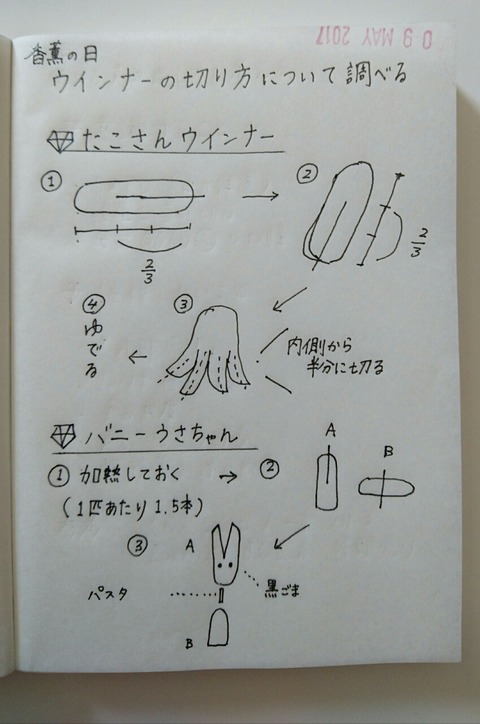 09 MAY 2017
香薫の日
ウインナーの切り方について調べる
たこさんウインナー
①
②
2/3
2/3
④
ゆでる
③
内側から
半分に切る
バニーうさちゃん
① 加熱しておく
(1匹あたり 1.5本)
②
A
B
③
A
黒ごま
パスタ
B